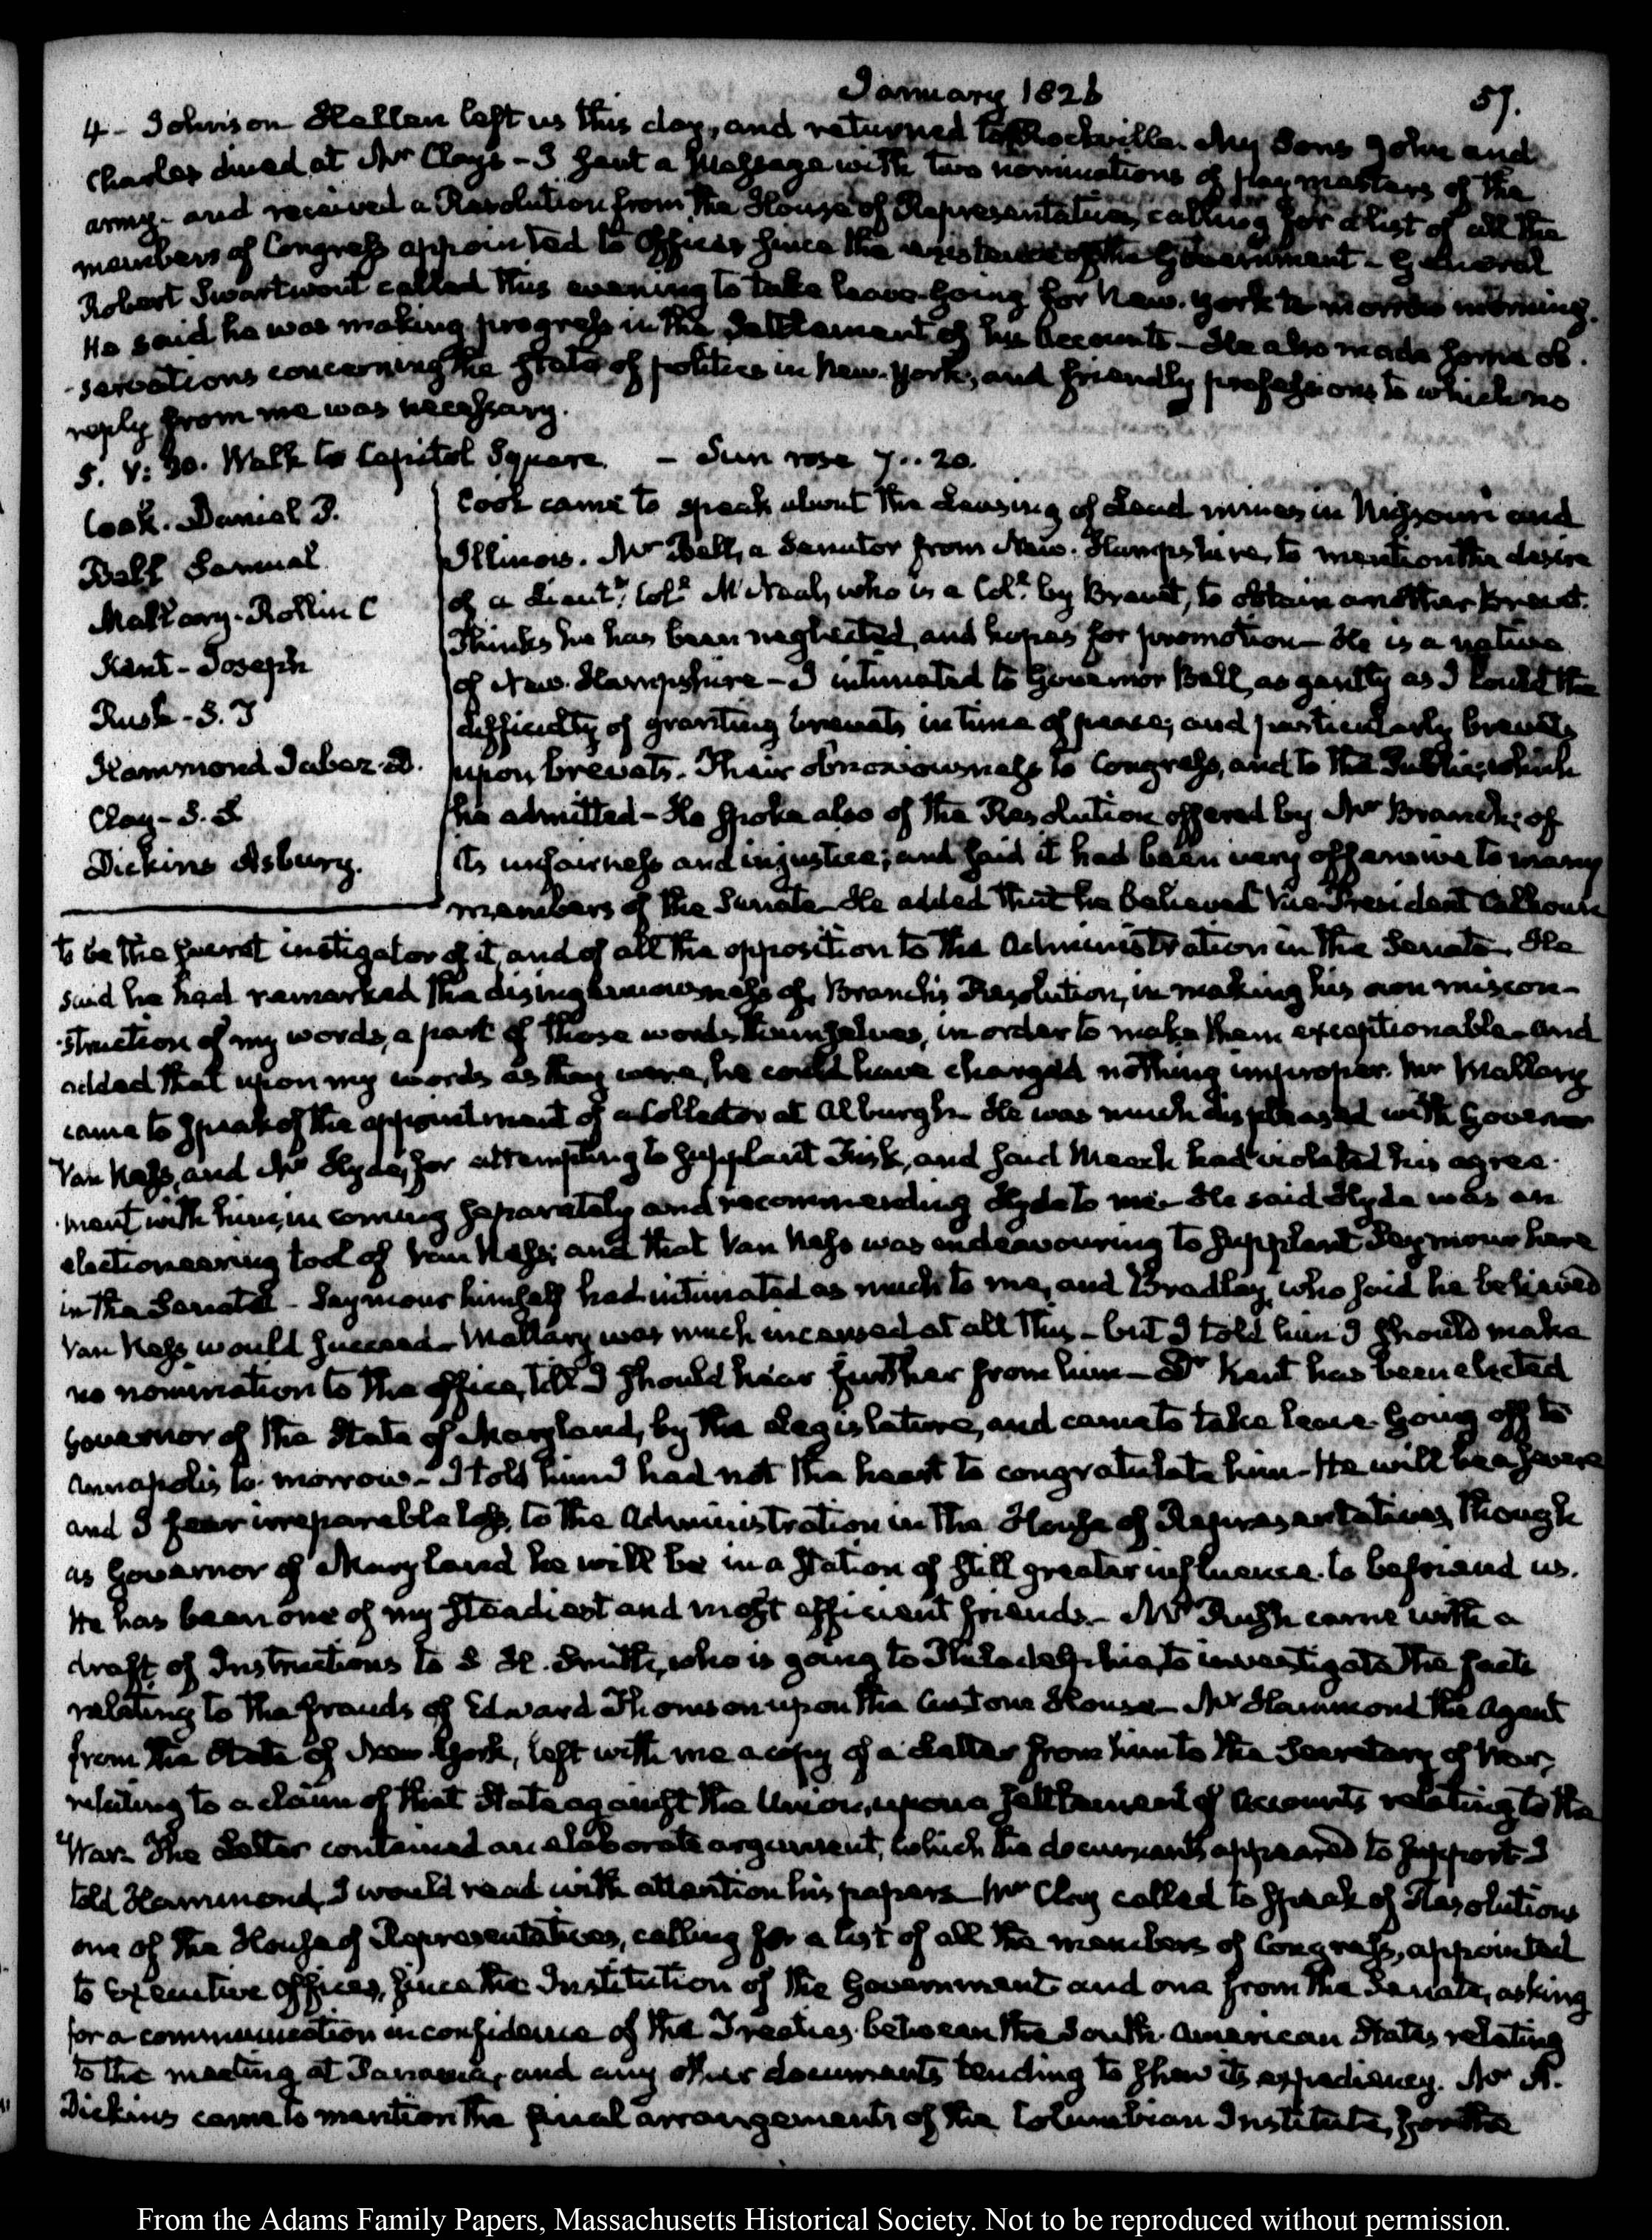 January 1826
57.
4 - Johnson Hellen left us this day, and returned to Rockville. My Sons John and
Charles dined at Mr Clay's - I sent a Message with two nominations of paymasters of the
army - and received a Resolution from the House of Representatives, calling for a list of all the
members of Congress appointed to Offices since the existence of the Government - General
Robert Swartwout called this evening to take leave. Going for New-York to morrow morning.
He said he was making progress in the Settlement of his Accounts - He also made some ob-
-servations concerning the state of politics in New-York, and friendly professions to which no
reply from me was necessary.
5. V: 30. Walk to Capitol Square. - Sun rose 7.. 20.
Cook. Daniel P.
Bell Samuel
Mallary. Rollin C
Kent - Joseph
Rush - S. T
Hammond Jabez D.
Clay - S. S
Dickins Asbury.
Cook came to speak about the Leasing of Lead mines in Missouri and
Illinois. Mr Bell, a Senator from New-Hampshire, to mention the desire
of a Lieutt. Coll. McNeal, who is a Coll. by Brevet, to obtain another brevet.
Thinks he has been neglected, and hopes for promotion - He is a native
of New-Hampshire - I intimated to Governor Bell, as gently as I could the
difficulty of granting brevets in time of peace; and particularly brevets
upon brevets. Their obnoxiousness to Congress, and to the Public; which
he admitted - He spoke also of the Resolution offered by Mr Branch; of
its unfairness and injustice; and said it had been very offensive to many
members of the Senate - He added that he believed Vice-President Calhoun
to be the secret instigator of it, and of all the opposition to the Administration in the Senate. He
said he had remarked the disingenuousness of Branch's Resolution, in making his own miscon-
-struction of my words, a part of those words themselves, in order to make them exceptionable - and
added that upon my words as they were, he could have charged nothing improper. Mr Mallary
came to speak of the appointment of a Collector at Alburgh - He was much displeased with Governor
Van Ness, and Mr Hyde, for attempting to supplant Fisk, and said Meech had violated his agree-
-ment with him, in coming separately and recommending Hyde to me - He said Hyde was an
electioneering tool of Van Ness; and that Van Ness was endeavouring to supplant Seymour here
in the Senate - Seymour himself had intimated as much to me, and Bradley, who said he believed
Van Ness would succeed - Mallary was much incensed at all this - but I told him I should make
no nomination to the office, till I should hear further from him - Dr Kent has been elected
Governor of the State of Maryland, by the Legislature, and came to take leave. Going off to
Annapolis to-morrow - I told him I had not the heart to congratulate him - He will be a severe
and I fear irreparable loss, to the Administration in the House of Representatives, though
as Governor of Maryland he will be in a station of still greater influence to befriend us.
He has been one of my steadiest and most efficient friends - Mr Rush came with a
draft of Instructions to S H. Smith, who is going to Philadelphia, to investigate the facts
relating to the frauds of Edward Thomson upon the Custom House - Mr Hammond the Agent
from the State of New-York, left with me a copy of a Letter from him to the Secretary of War,
relating to a claim of that State against the Union, upon a Settlement of Accounts relating to the
War. The Letter contained an elaborate argument, which the documents appeared to support - I
told Hammond, I would read with attention his papers - Mr Clay called to speak of Resolutions
one of the House of Representatives, calling for a list of all the members of Congress, appointed
to Executive offices, since the Institution of the Government - and one from the Senate, asking
for a communication in confidence of the Treaties between the South-American States relating
to the meeting at Panama, and any other documents tending to shew its expediency. Mr A.
Dickins came to mention the final arrangements of the Columbian Institute, for the
From the Adams Family Papers, Massachusetts Historical Society. Not to be reproduced without permission.